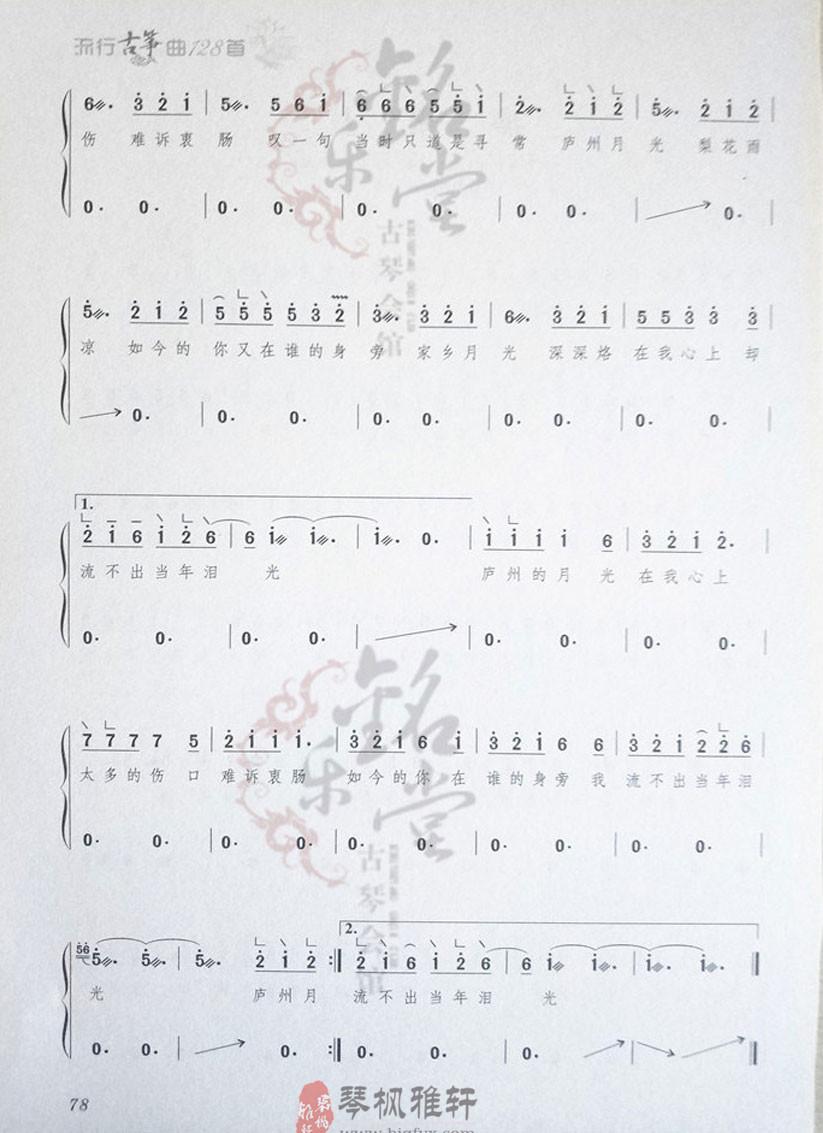 流行古筝曲128首
6. 3 2 1 | 5. 5 6 1 | 6 6 6 5 5 1 | 2. 2 1 2 | 5. 2 1 2 |
伤 难诉衷 肠 叹一句 当时只道是寻 常 庐州月 光 梨花雨
0. 0. | 0. 0. | 0. 0. | 0. 0. | 0. |
5. 2 1 2 | 5 5 5 5 3 2 | 3. 3 2 1 | 6. 1 2 1 | 5 5 3 3 3 |
凉 如今的 你又在谁的身 旁 家乡月 光 深深烙 在我心上 却
0. | 0. 0. | 0. 0. | 0. 0. | 0. 0. |
1.
2 1 6 1 2 6 | 6 1 1. | 1. 0. | 1 1 1 1 6 | 3 2 1 2. |
流不出当年泪 光 庐州的月 光 在我心上
0. 0. | 0. 0. | | 0. 0. | 0. 0. |
7 7 7 7 5 | 2 1 1 1. | 3 2 1 6 1 | 3 2 1 6 6 | 3 2 1 2 2 6 |
太多的伤 口 难诉衷肠 如今的你 在 谁的身旁 我 流不出当年泪
0. 0. | 0. 0. | 0. 0. | 0. 0. | 0. 0. |
2.
56 5. 5. | 5. 2 1 2 :| 2 1 6 1 2 6 | 6 1 1. | 1. 1. ‖
光 庐州月 流不出当年泪 光
0. 0. | 0. :| 0. 0. | 0. | ‖
78
铭乐堂
古琴会馆
铭乐堂
古琴会馆
琴枫雅轩